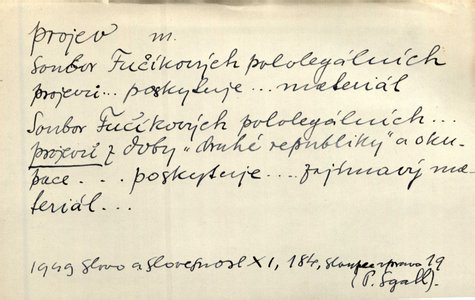 projev m.
Soubor Fučíkových pololegálních
projevů... poskytuje... materiál
Soubor Fučíkových pololegálních...
projevů z doby „druhé republiky" a oku-
pace... poskytuje.... zajímavý ma-
teriál...
1949 Slovo a slovesnost XI, 184, sloupec zprava 19
(P. Sgall).